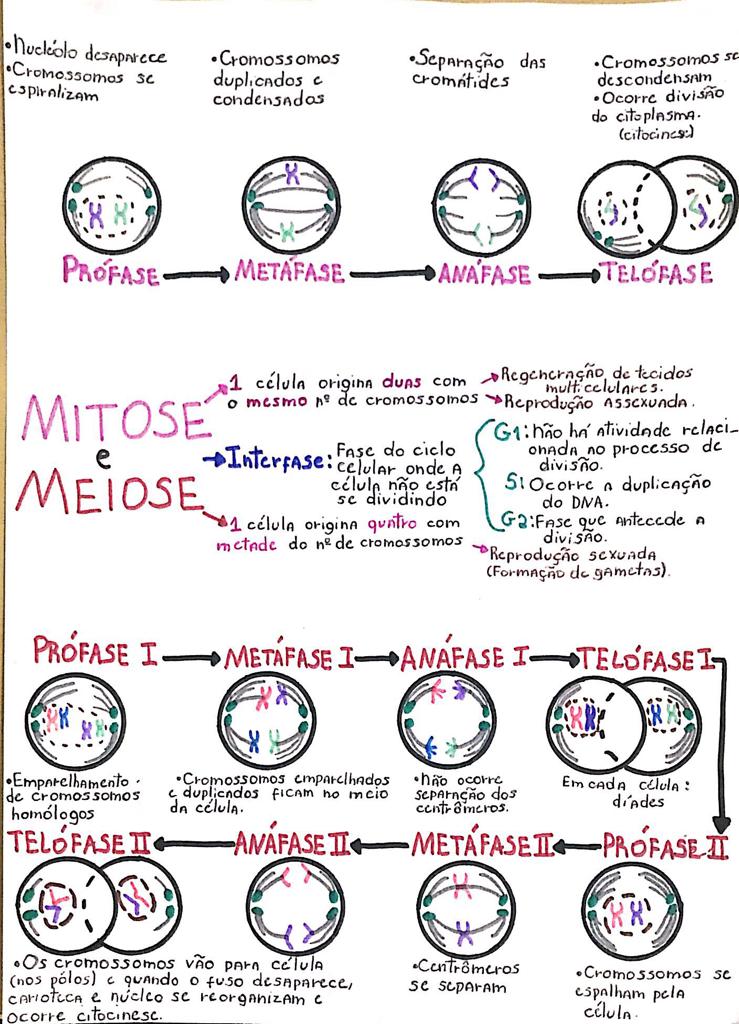 •Nucléolo desaparece
•Cromossomos se
espiralizam
•Cromossomos
duplicados e
condensados
•Separação das
cromátides
•Cromossomos se
descondensam
•Ocorre divisão
do citoplasma.
(citocinese)
PRÓFASE
METÁFASE
ANÁFASE
TELÓFASE
MITOSE
e
MEIOSE
1 célula origina duas com
o mesmo nº de cromossomos
Regeneração de tecidos
multicelulares.
Reprodução Assexuada.
Interfase: Fase do ciclo
celular onde a
célula não está
se dividindo
G1: Não há atividade relaci-
onada no processo de
divisão.
S: Ocorre a duplicação
do DNA.
G2: Fase que antecede a
divisão.
1 célula origina quatro com
metade do nº de cromossomos
Reprodução sexuada
(Formação de gametas).
PRÓFASE I
METÁFASE I
ANÁFASE I
TELÓFASE I
•Emparelhamento
de cromossomos
homólogos
•Cromossomos emparelhados
e duplicados ficam no meio
da célula.
•Não ocorre
separação dos
centrômeros.
Em cada célula:
díades
TELÓFASE II
ANÁFASE II
METÁFASE II
PRÓFASE II
•Os cromossomos vão para célula
(nos pólos) e quando o fuso desaparece,
carioteca e núcleo se reorganizam e
ocorre citocinese.
•Centrômeros
se separam
•Cromossomos se
espalham pela
célula.